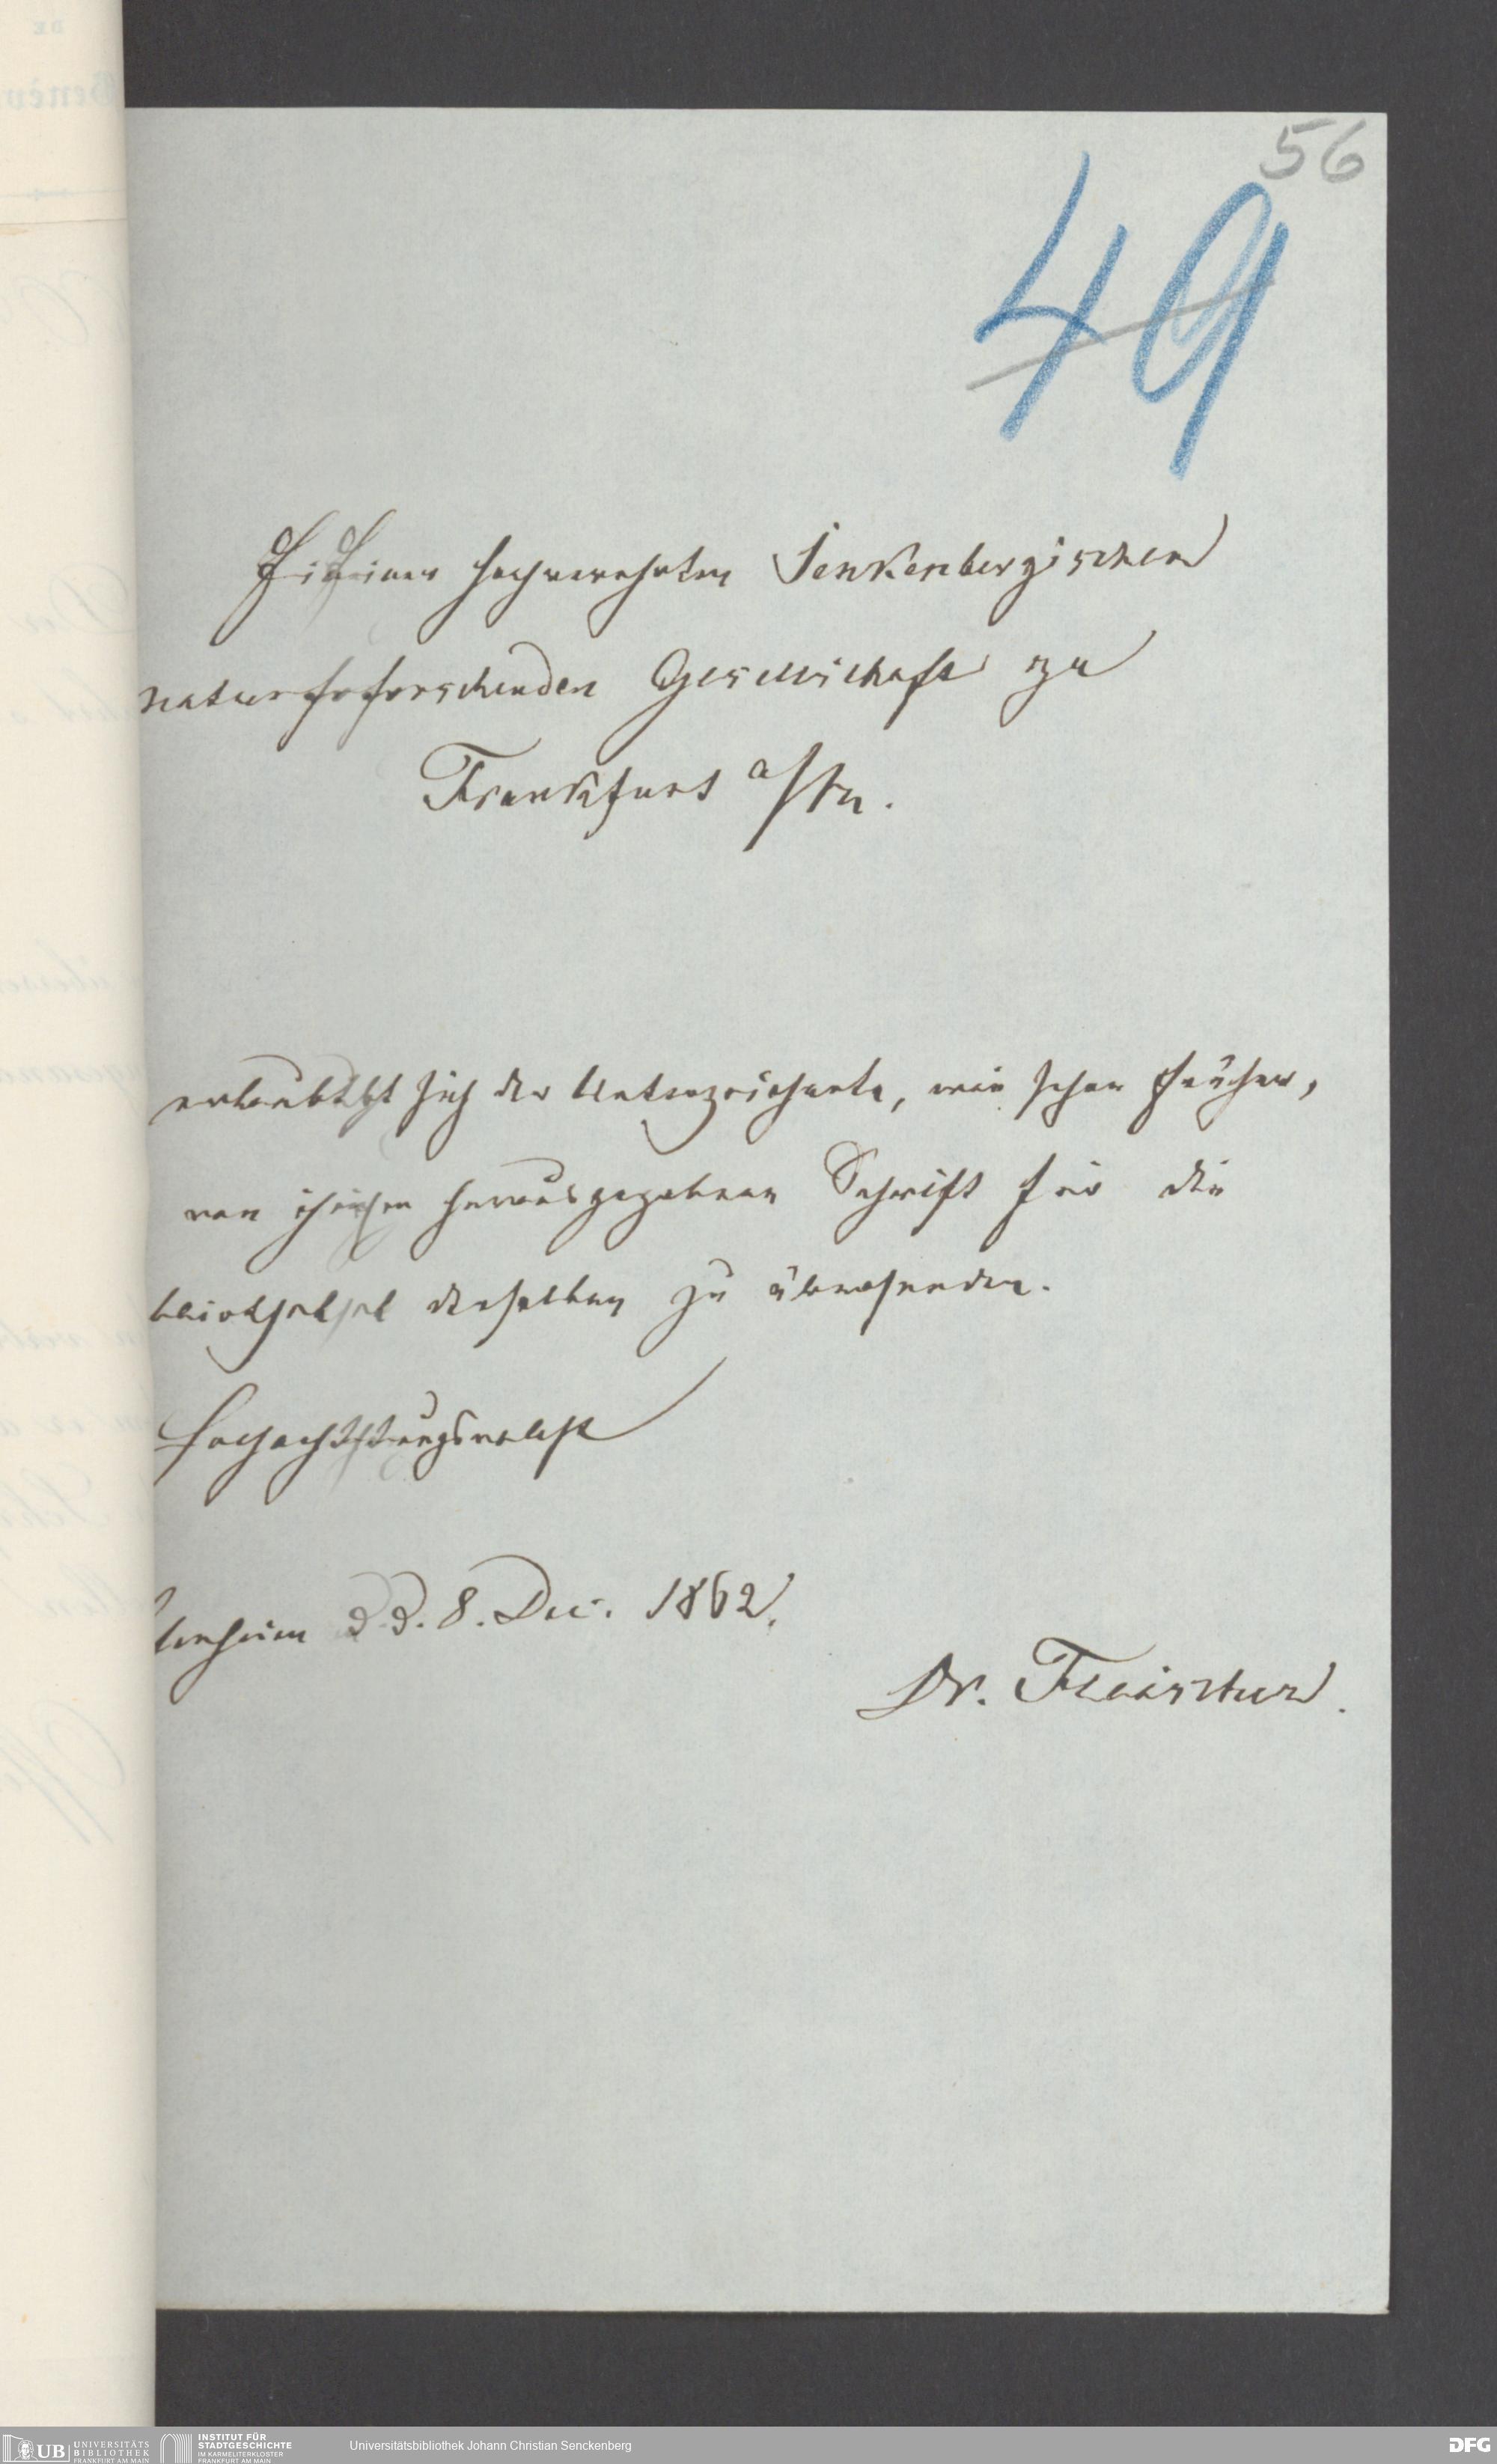 56
49
Einer hochverehrten Senkenbergischen
naturforschenden Gesellschaft zu
Frankfurt a/M.
erlaubt sich der Unterzeichnete, wie schon früher,
von ihm herausgegebenen Schrift für die
derselben zu übersenden.
Hochachtungsvollst
d. 8. Dec. 1862.
Dr. Fleischer.
UB UNIVERSITÄTS
BIBLIOTHEK
FRANKFURT AM MAIN
INSTITUT FÜR
STADTGESCHICHTE
IM KARMELITERKLOSTER
FRANKFURT AM MAIN
Universitätsbibliothek Johann Christian Senckenberg
DFG